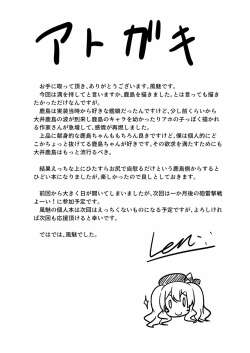 アトガキ
お手に取って頂き、ありがとうございます。風魅です。
今回は満を持してと言いますか、鹿島を描きました。とは言っても描き
たかっただけなんですが。
鹿島は実装当時から好きな艦娘だったんですけど、少し前くらいから
大井鹿島の波が到来し鹿島のキャラを始かったリアホのチっぽく描かれ
る作家さんが急増して、感度が再燃しました。
上品に献身的な鹿島ちゃんももちろん良きですけど、僕は個人的にど
こかちょっと抜けてる鹿島ちゃんが好きです。その欲求を満たすために
大井鹿島はもっと流行るべき。
結果えっちな上にひたすらお尻で自慰るだけという鹿島側からすると
ひどい本になりましたが、楽しかったので良しとしておきます。
前回から大きく日が開いてしまいましたが、次回は一か月後の砲雷撃戦
よーい!に参加予定です。
風魅の個人本は次回はえっちくないものになる予定ですが、よろしければ
次回も応援頂けると幸いです。
ではでは。風魅でした。
Len